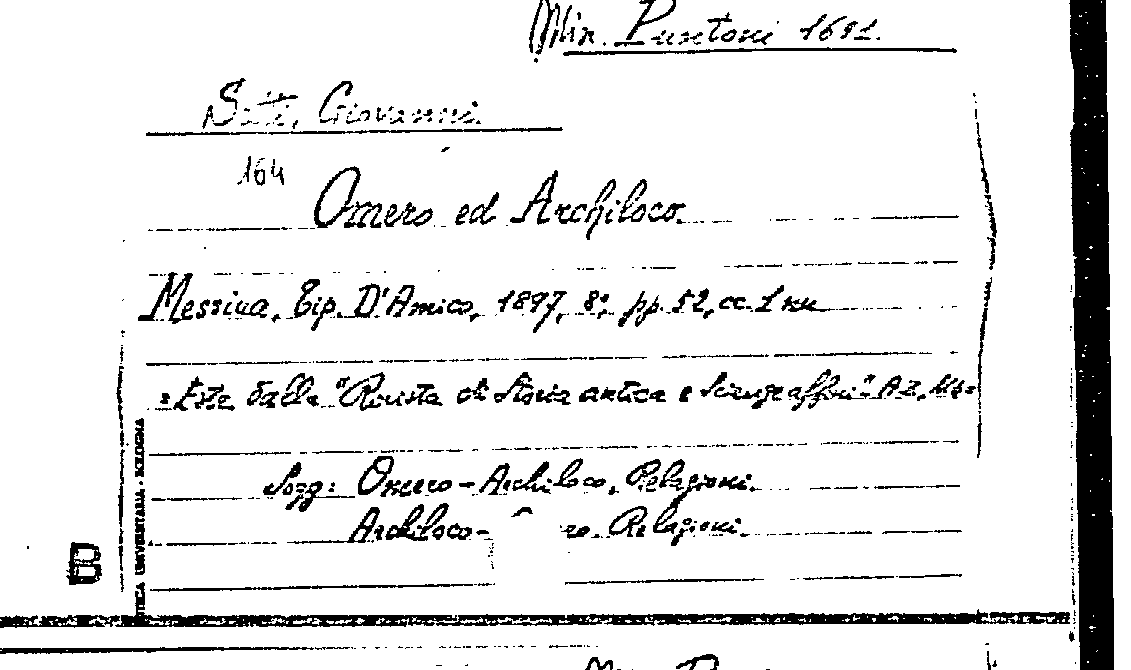 Min. Puntoni 1691.
Setti, Giovanni.
164
Omero ed Archiloco.
Messina, Tip. D'Amico, 1897, 8°, pp. 52, cc. 1 nn
=Estr. dalla "Rivista di Storia antica e Scienze affini" A2,
Sogg: Omero - Archiloco, Relazioni.
Archiloco - ro. Relazioni.
B
UNIVERSITARIA - BOLOGNA